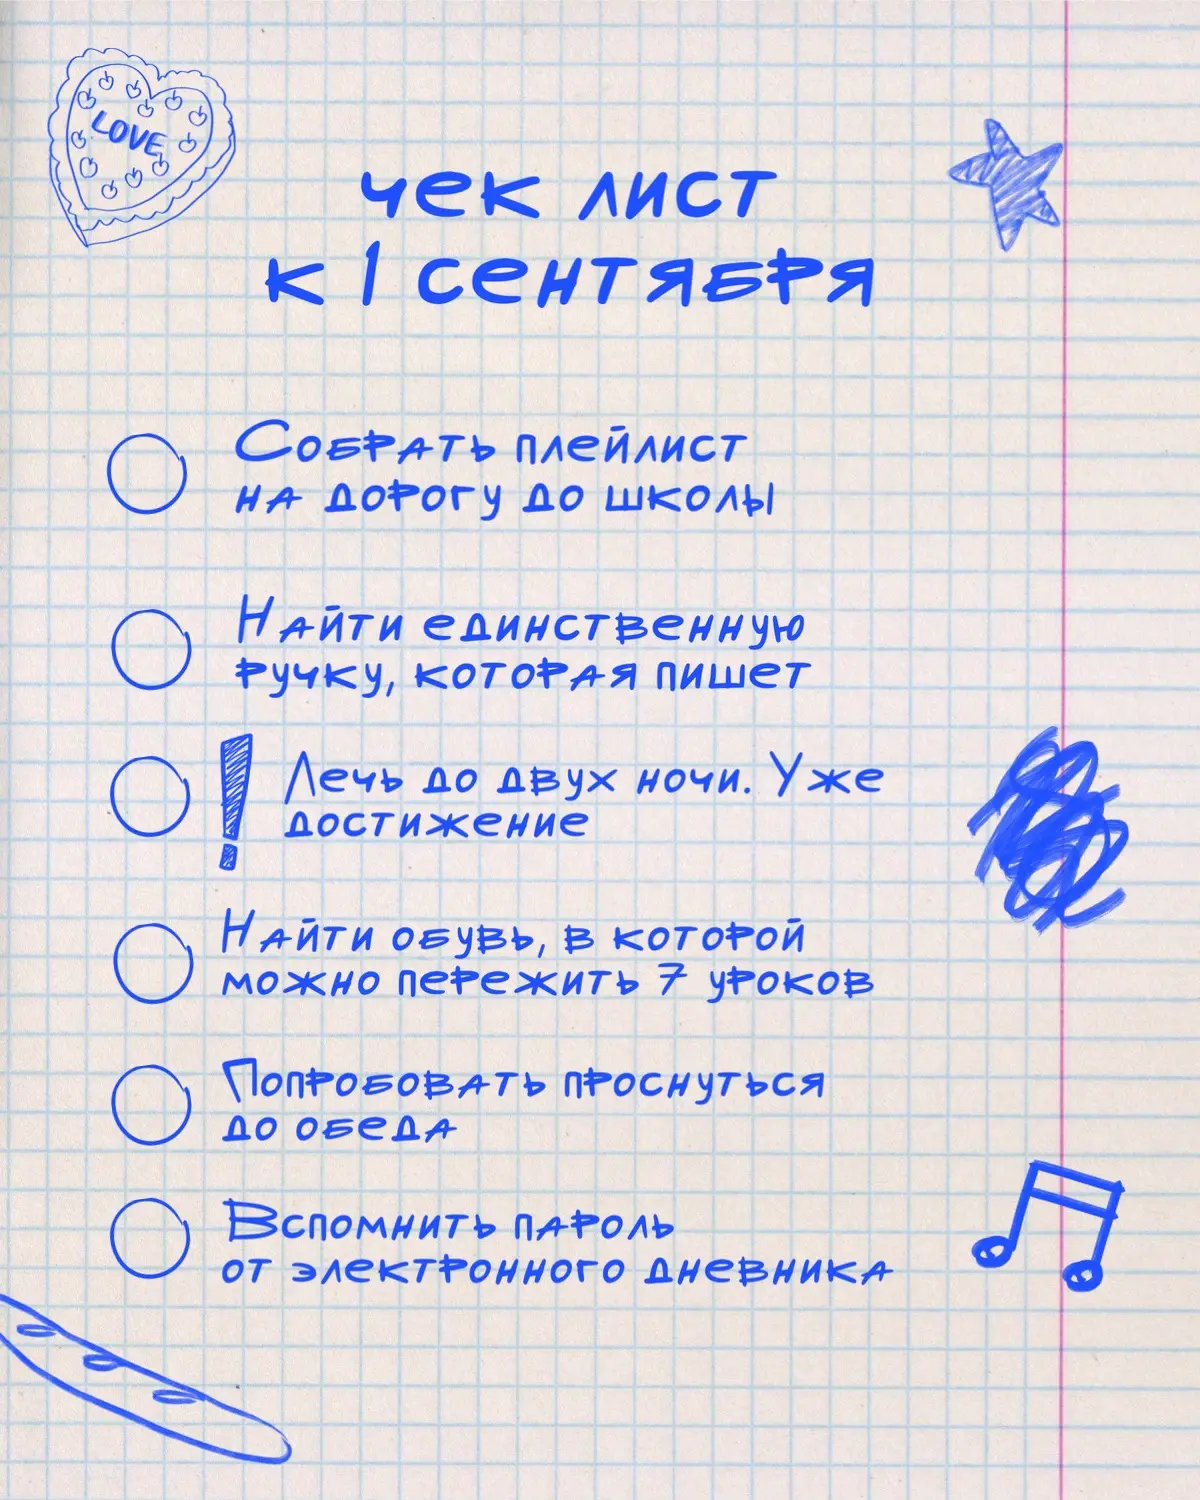 LOVE
чек лист
к 1 сентября
Собрать плейлист
на дорогу до школы
Найти единственную
ручку, которая пишет
! Лечь до двух ночи. Уже
достижение
Найти обувь, в которой
можно пережить 7 уроков
Попробовать проснуться
до обеда
Вспомнить пароль
от электронного дневника